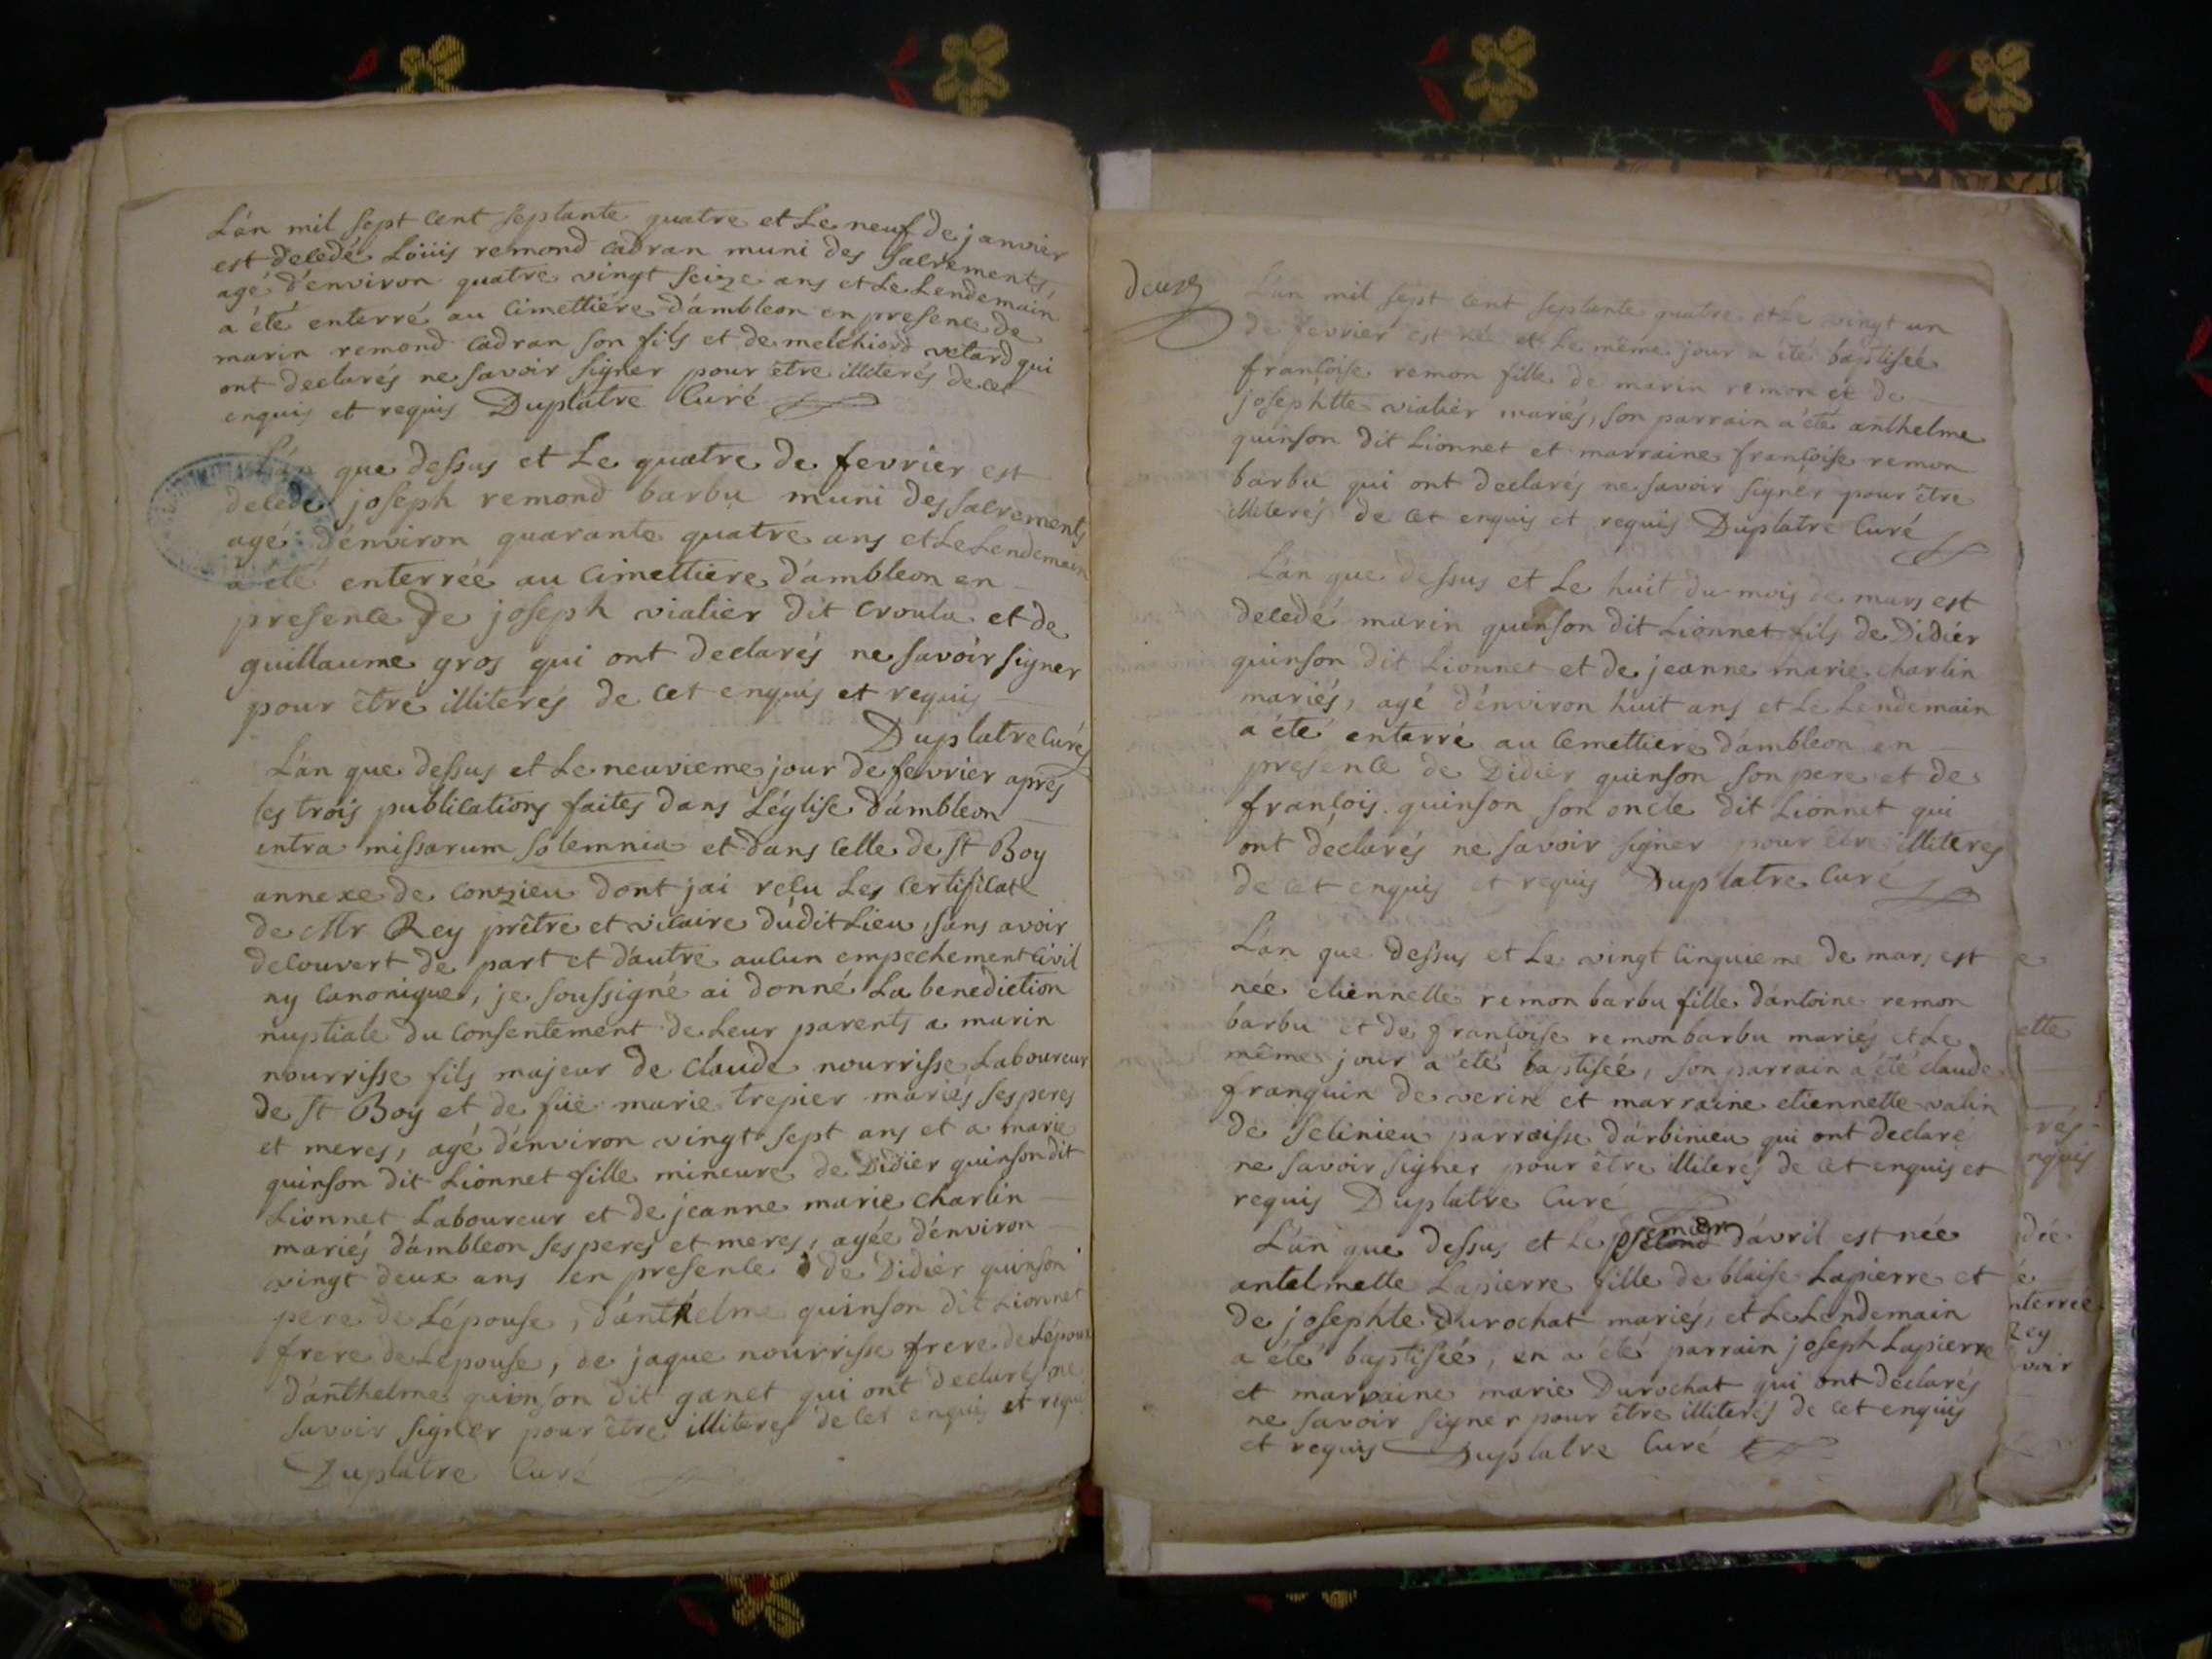 L'an mil sept cent septante quatre et le neuf de janvier
est decedé Loüis remond cadran muni des sacrements,
agé d'environ quatre vingt seize ans et le lendemain
a été enterré au cimettiére d'ambleon en presence de
marin remond cadran son fils et de melchiord vetard qui
ont declarés ne savoir signer pour être illiterés de ce
enquis et requis Duplatre Curé
L'an que dessus et le quatre de fevrier est
decedé joseph remond barbu muni des sacrements
agé d'environ quarante quatre ans et le lendemain
a été enterrée au cimettiere d'ambleon en
presence de joseph vialier dit croula et de
guillaume gros qui ont declarés ne savoir signer
pour être illiterés de cet enquis et requis
Duplatre Curé
L'an que dessus et le neuvieme jour de fevrier aprés
les trois publications faites dans l'église d'ambleon
intra missarum solemnia et dans celle de st Boy
annexe de conzieu dont jai reçu les certificat
de Mr Rey prêtre et vicaire dudit lieu, sans avoir
decouvert de part et d'autre aucun empechement civil
ny canonique, je soussigné ai donné la benediction
nuptiale du consentement de leur parents a marin
nourrisse fils majeur de claude nourrisse laboureur
de st Boy et de füe marie trepier mariés ses peres
et meres, agé d'environ vingt sept ans et a marie
quinson dit Lionnet fille mineure de Didier quinson dit
Lionnet Laboureur et de jeanne marie charlin
mariés d'ambleon ses peres et meres, agée d'environ
vingt deux ans en presence de Didier quinson
pere de l'épouse, d'anthelme quinson dit Lionnet
frere de lepouse, de jaque nourrisse frere de l'epoux
d'anthelme quinson dit ganet qui ont declarés ne
savoir signer pour être illiteres de cet enquis et requi
Duplatre Curé
deux
L'an mil sept cent septante quatre et le vingt un
de fevrier est née et le même jour a été baptisée
françoise remon fille de marin remon et de
josephtte vialier mariés, son parrain a été anthelme
quinson dit Lionnet et marraine françoise remon
barbu qui ont declarés ne savoir signer pour être
illiterés de cet enquis et requis Duplatre Curé
L'an que dessus et le huit du mois de mars est
decedé marin quinson dit Lionnet fils de Didier
quinson dit Lionnet et de jeanne marie charlin
mariés, agé d'environ huit ans et le lendemain
a été enterré au cemettiere d'ambleon en
presence de Didier quinson son pere et de
françois quinson son oncle dit Lionnet qui
ont déclarés ne savoir signer pour être illiterés
de cet enquis et requis Duplatre Curé
L'an que dessus et le vingt cinquieme de mars est
née etiennette remon barbu fille d'antoine remon
barbu et de françoise remon barbu mariés et le
même jour a été baptisée, son parrain a été claude
franquin de verin et marraine etiennette valin
de selinieu parroisse d'arbinieu qui ont declaré
ne savoir signer pour être illiterés de cet enquis et
requis Duplatre Curé
L'an que dessus et le premier d'avril est née
antelmette Lapierre fille de blaise Lapierre et
de josephte Durochat mariés, et le lendemain
a été baptisée, en a été parrain joseph Lapierre
et marraine marie Durochat qui ont déclarés
ne savoir signer pour être illiterés de cet enquis
et requis Duplatre Curé
e
ette
rés
nquis
dée
é
nterrée
Rey
voir